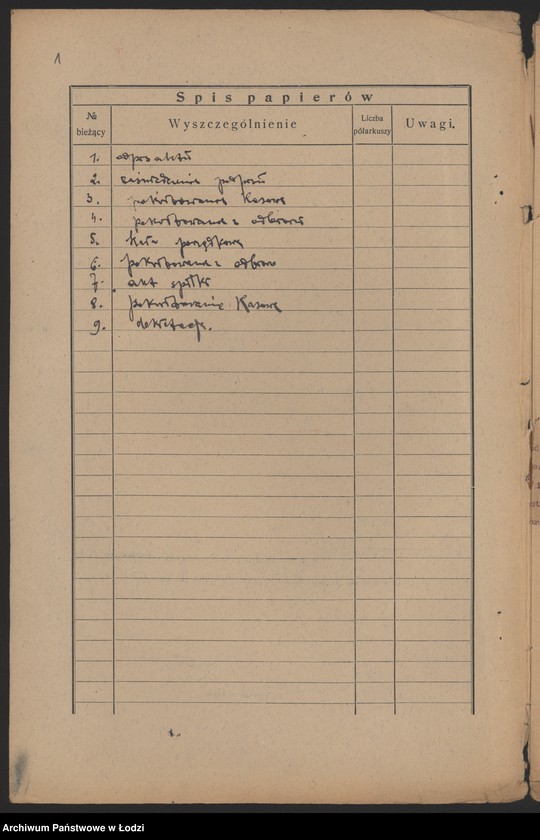 1
Spis papierów
№ bieżący
Wyszczególnienie
Liczba półarkuszy
Uwagi.
1. odpis aktu
2.
3. pokwitowanie Kasowe
4. pokwitowanie odbioru
5.
6. pokwitowanie odbioru
7. akt spółki
8. pokwitowanie Kasowe
9. deklaracje.
Archiwum Państwowe w Łodzi